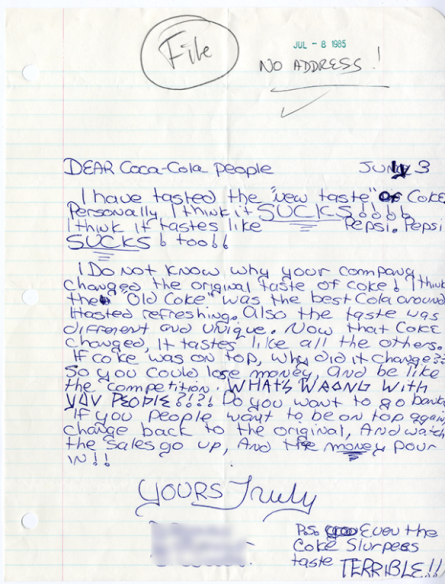 File
JUL - 8 1985
NO ADDRESS!
DEAR Coca-Cola People
July 3
I have tasted the "new taste" of Coke
Personally, I think it SUCKS!!!!
I think it tastes like Pepsi. Pepsi
SUCKS! too!!
I Do not know why your company
changed the original taste of coke! I think
the "Old Coke" was the best Cola around
It tasted refreshing. Also the taste was
different and unique. Now that Coke
changed, It tastes like all the others.
If coke was on top, why did it change??
So you could lose money, and be like
the competition. WHATS WRONG WITH
YOU PEOPLE?!?! Do you want to go bank
If you people want to be on top again,
change back to the original, And watch
the sales go up, And the money pour
IN!!
YOURS Truly
P.S. Even the
Coke Slurpees
taste TERRIBLE!!